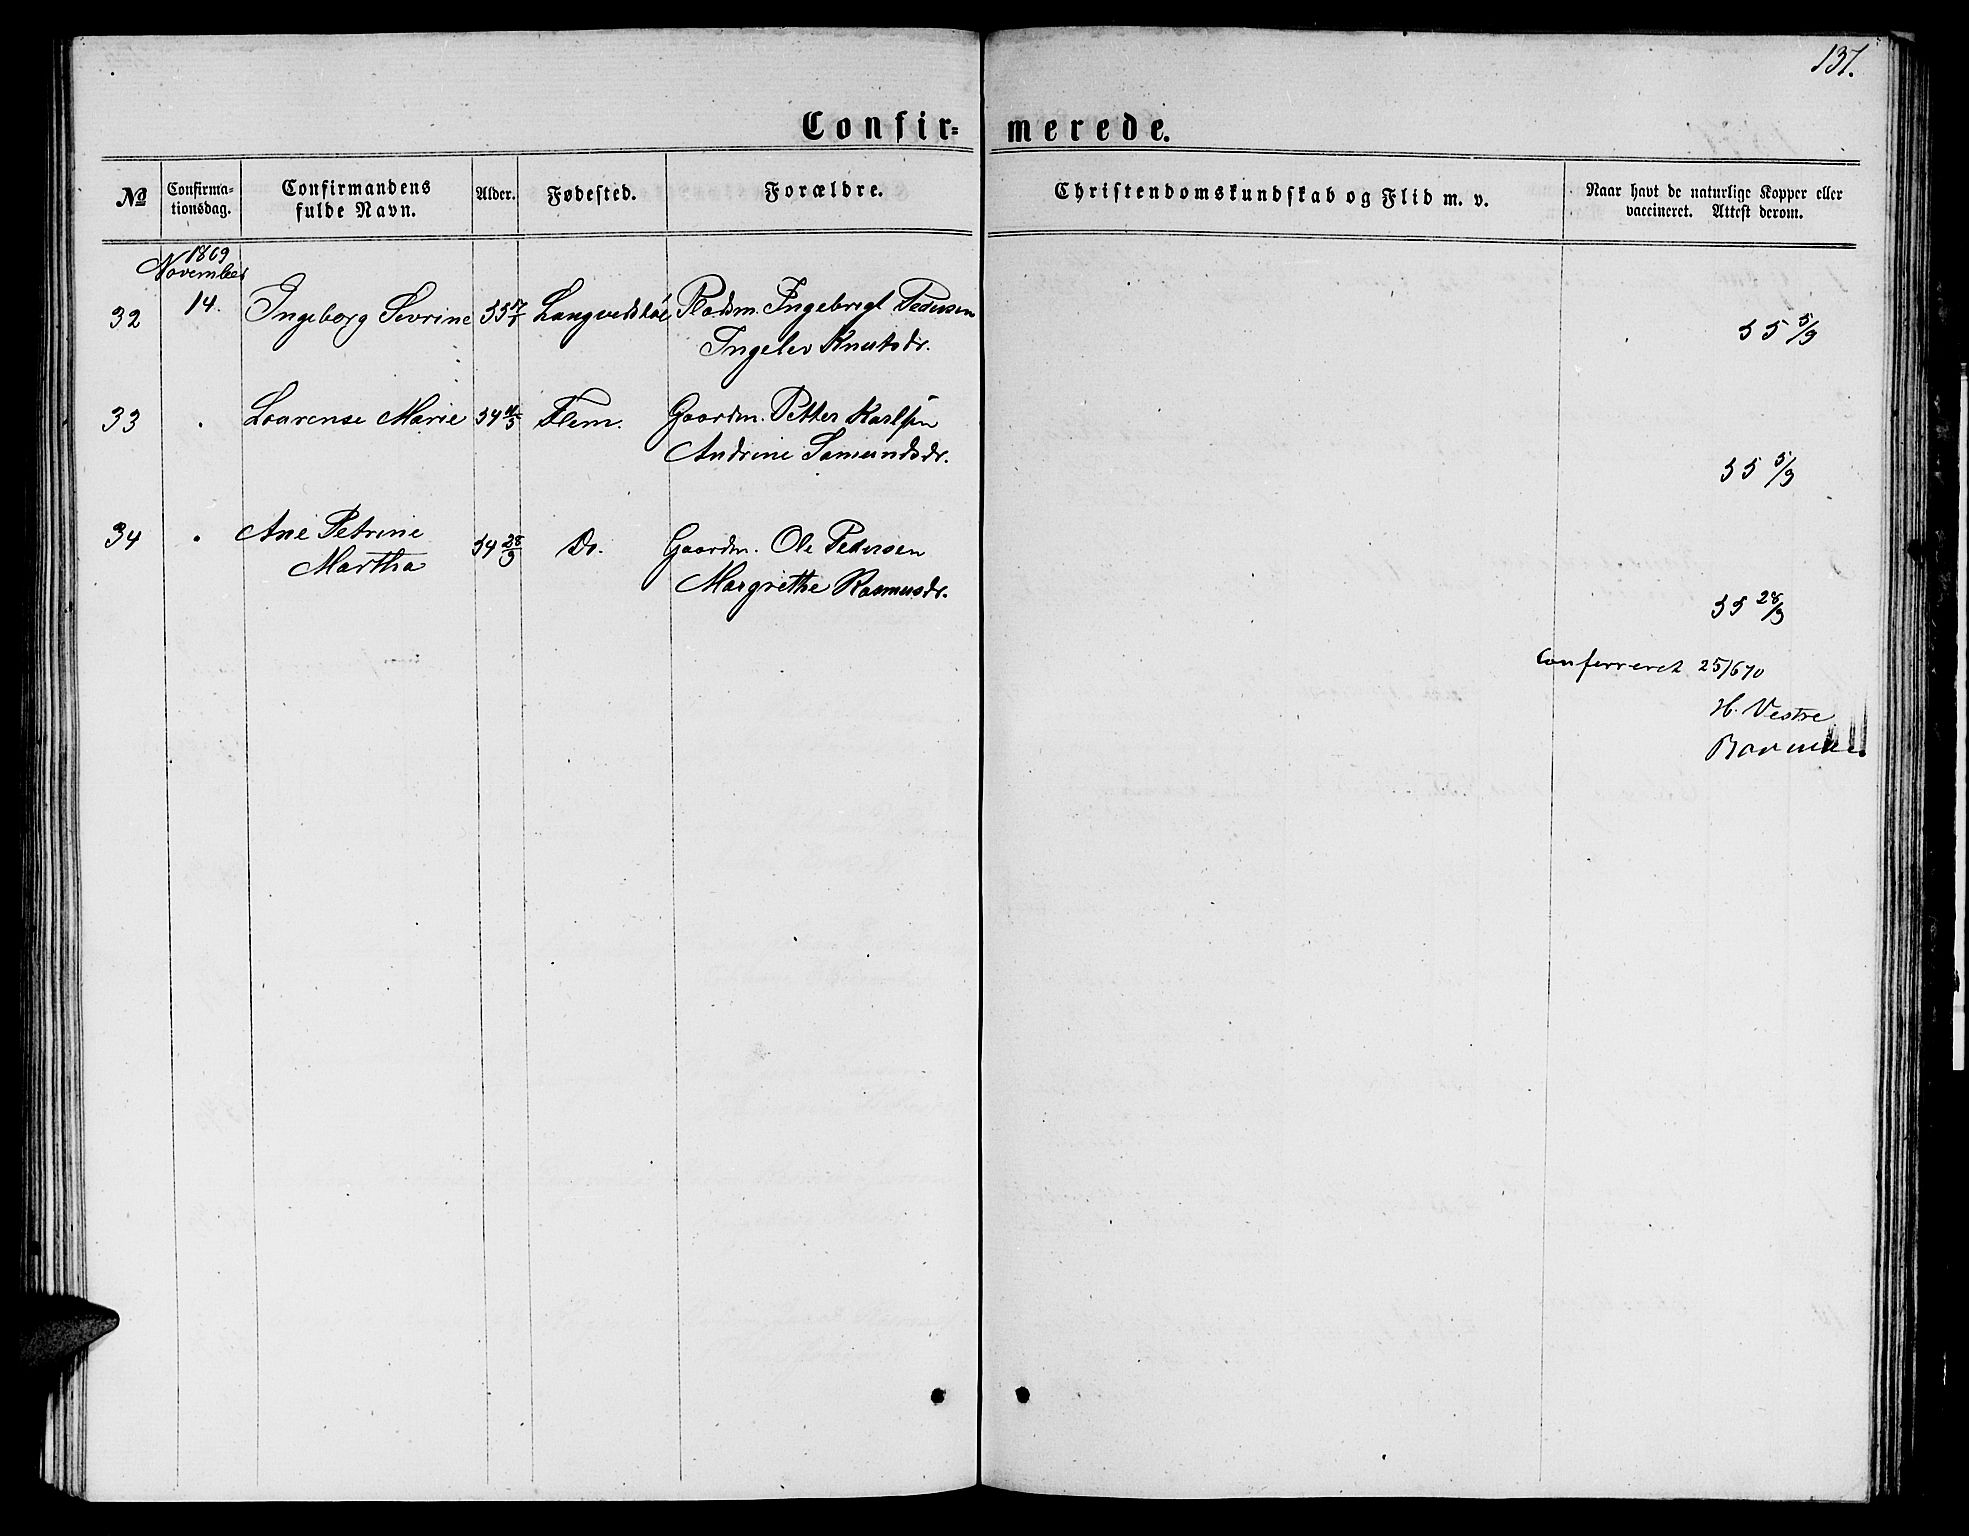 137.
Confir- merede.
No Confirma- tionsdag. Confirmandens fulde Navn. Alder. Fødested. Forældre. Christendomskundskab og Flid m. v. Naar havt de naturlige Kopper eller vaccineret. Attest derom.
1869
November
32 14. Ingeborg Sevrine 55 Pladsm. Ingebrigt Pedersen
Ingelev Knutsdr.
55 5/9
33 . Laurense Marie 54 Flem. Gaardm. Petter Karlsen
Andrine Samundsdr.
55 5/9
34 . Ane Petrine 54 28/9 Do. Gaardm. Ole Pedersen
Martha Margrethe Rasmusdr.
55 28/9
Conferreret 25/6 70
H. Vestre